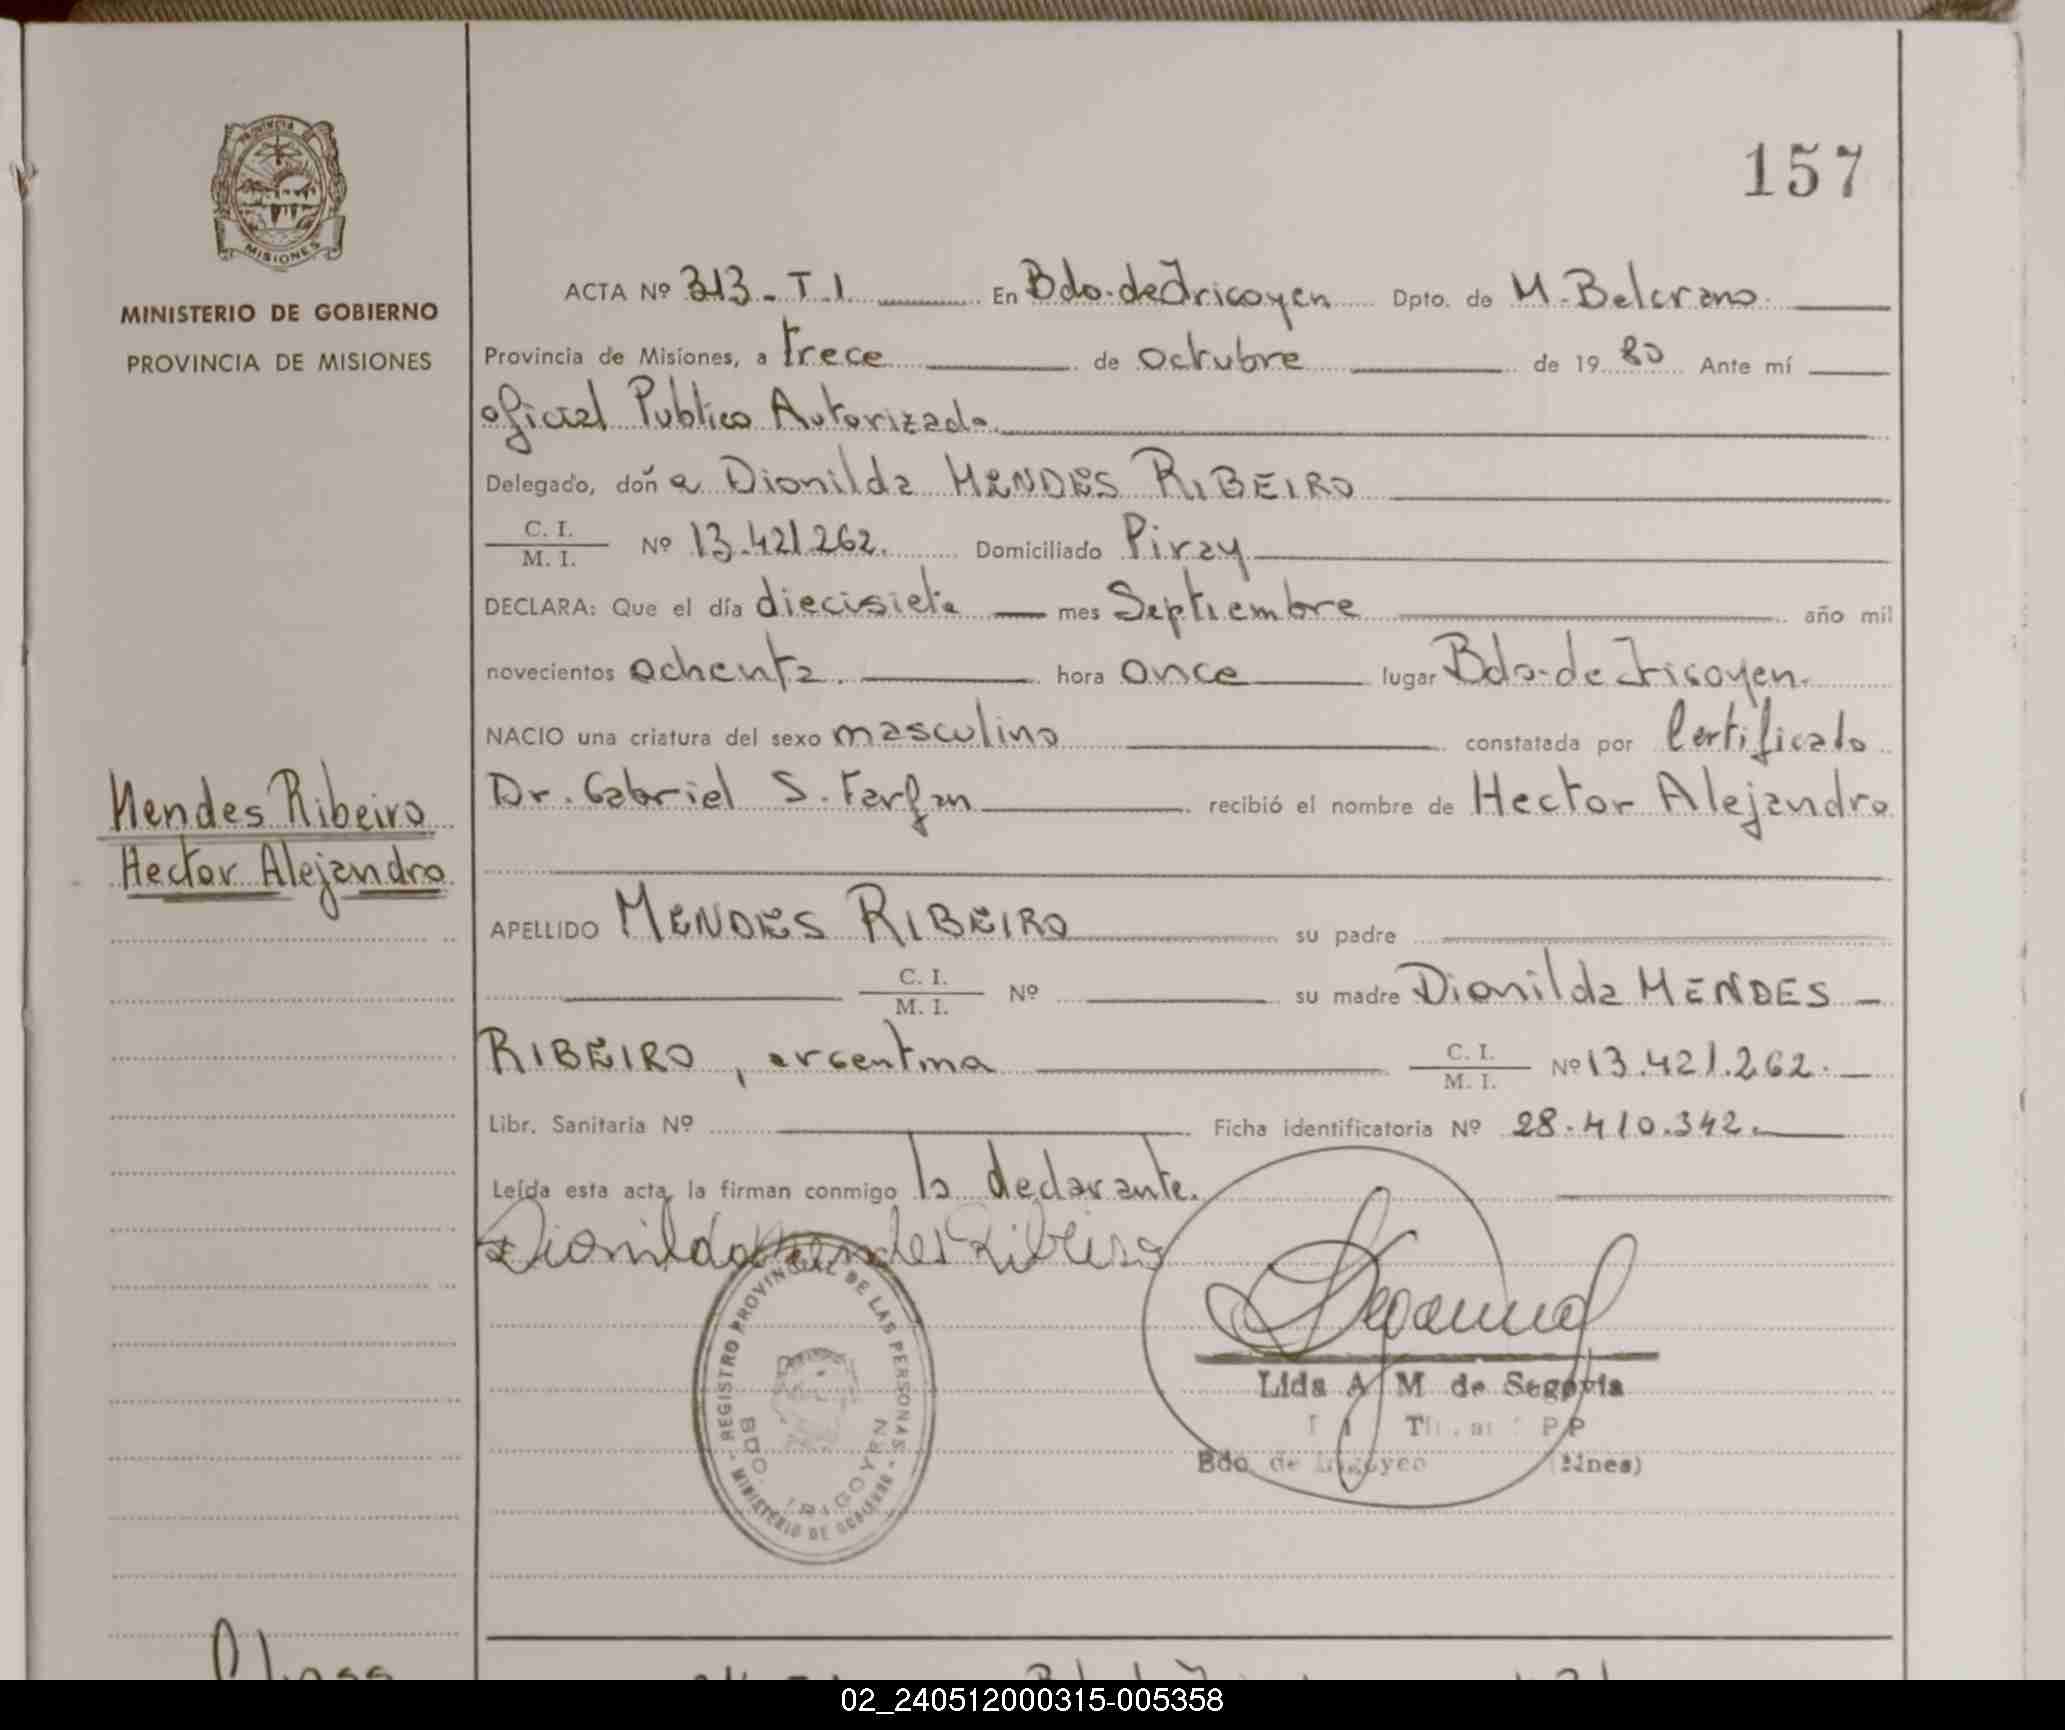 157
PROVINCIA
MISIONES
MINISTERIO DE GOBIERNO
PROVINCIA DE MISIONES
ACTA Nº 313-T.I En Bdo. de Iricoyen Dpto. de M. Belcrano
Provincia de Misiones, a trece de octubre de 19 80 Ante mí
oficial Publico Autorizado
Delegado, doñ a Dionilda MENDES RIBEIRO
C. I.
M. I. Nº 13.421.262. Domiciliado Piray
DECLARA: Que el día diecisiete mes Septiembre año mil
novecientos ochenta. hora once lugar Bdo-de Iricoyen.
NACIO una criatura del sexo masculino constatada por Certificado
Dr. Gabriel S. Farfan recibió el nombre de Hector Alejandro
Mendes Ribeiro
Hector Alejandro
APELLIDO MENDES RIBEIRO su padre
C. I.
M. I. Nº su madre Dionilda MENDES
RIBEIRO, arcentina C. I.
M. I. Nº 13.421.262.
Libr. Sanitaria Nº Ficha identificatoria Nº 28.410.342.
Leída esta acta, la firman conmigo la declarante.
Dionilda Mendes Ribeiro
REGISTRO PROVINCIAL DE LAS PERSONAS
MINISTERIO DE GOBIERNO
BDO. IRIGOYEN
Lida A M de Segovia
Bdo. de Irigoyen (Mnes)
02_240512000315-005358